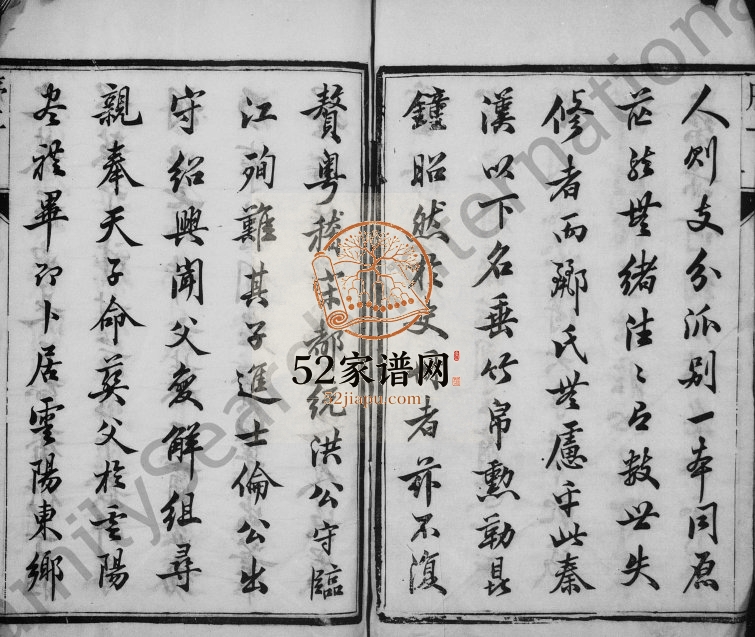 人则支分派别一本同原
茫然無緒往〻有数世失
修者而鄒氏無慮乎此秦
漢以下名垂竹帛勲勒昆
鐘昭然於史者茲不復
贅粤稽宋都統洪公守臨
江殉難其子進士倫公出
守紹興聞父變解組尋
親奉天子命葬父於雲陽
喪禮畢即卜居雲陽東鄉
52家谱网
52jiapu.com